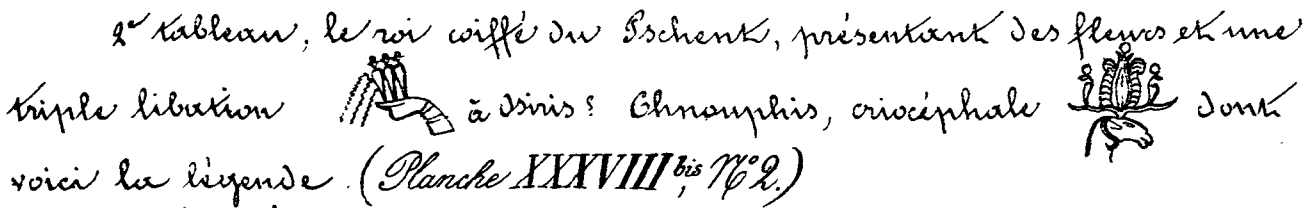 2e tableau, le roi coiffé du Pschent, présentant des fleurs et une
triple libation à Osiris? Chnouphis, criocéphale dont
voici la légende (Planche XXXVIII bis, No 2.)